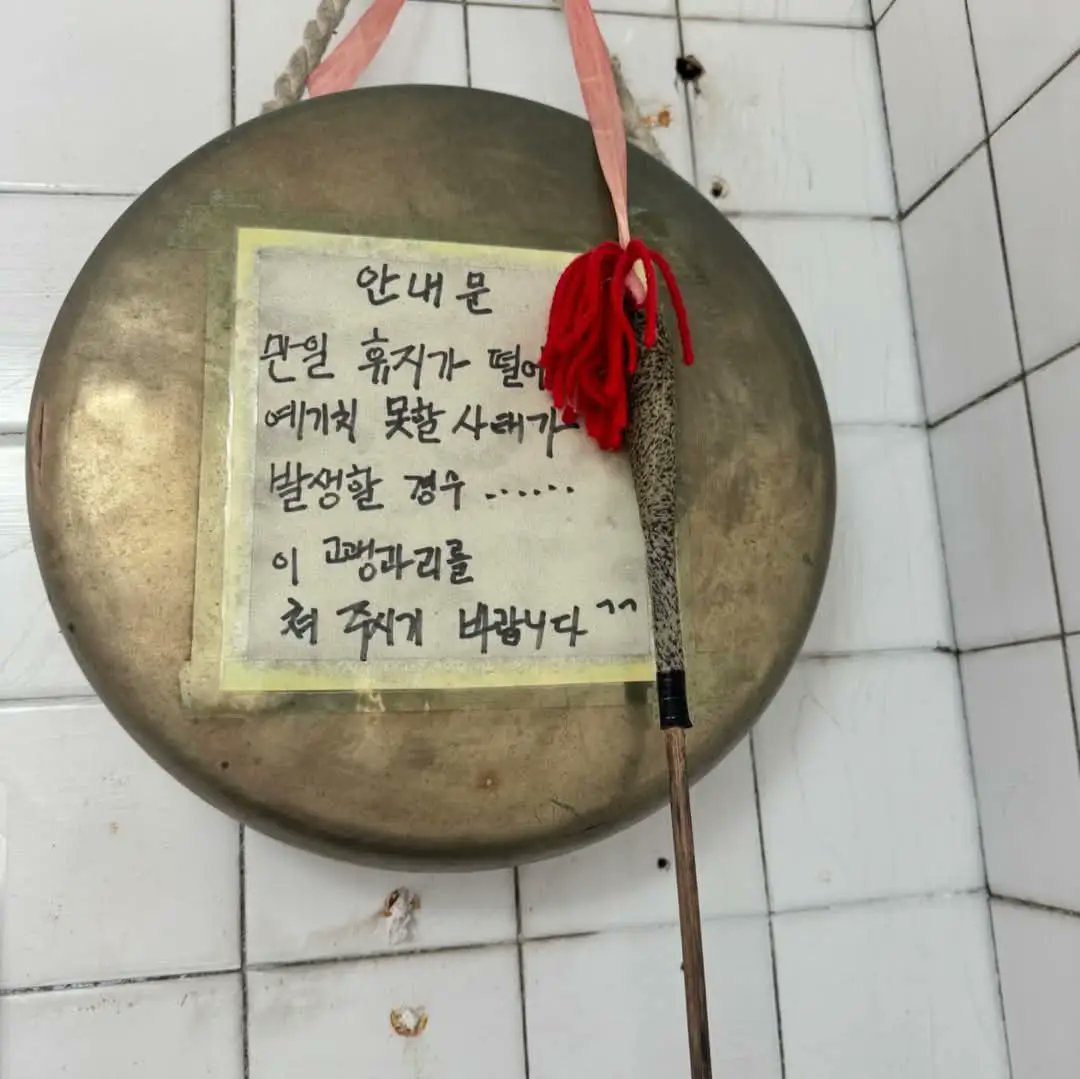 안내문
만일 휴지가
예기치 못할 사태가
발생할 경우 ......
이 꽹과리를
쳐 주시기 바랍니다 ^^